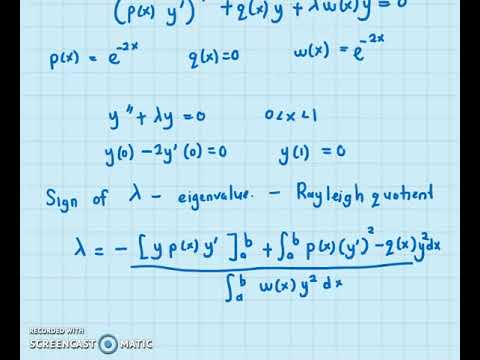 (p(x) y')' + q(x)y + λw(x)y = 0
p(x) = e^{-2x} q(x)=0 w(x) = e^{-2x}
y'' + λy = 0 0<x<1
y(0) - 2y'(0) = 0 y(1) = 0
Sign of λ - eigenvalue. - Rayleigh quotient
λ = -[y p(x) y']_a^b + ∫_a^b p(x)(y')^2 - q(x)y^2 dx
∫_a^b w(x) y^2 dx
RECORDED WITH
SCREENCAST MATIC